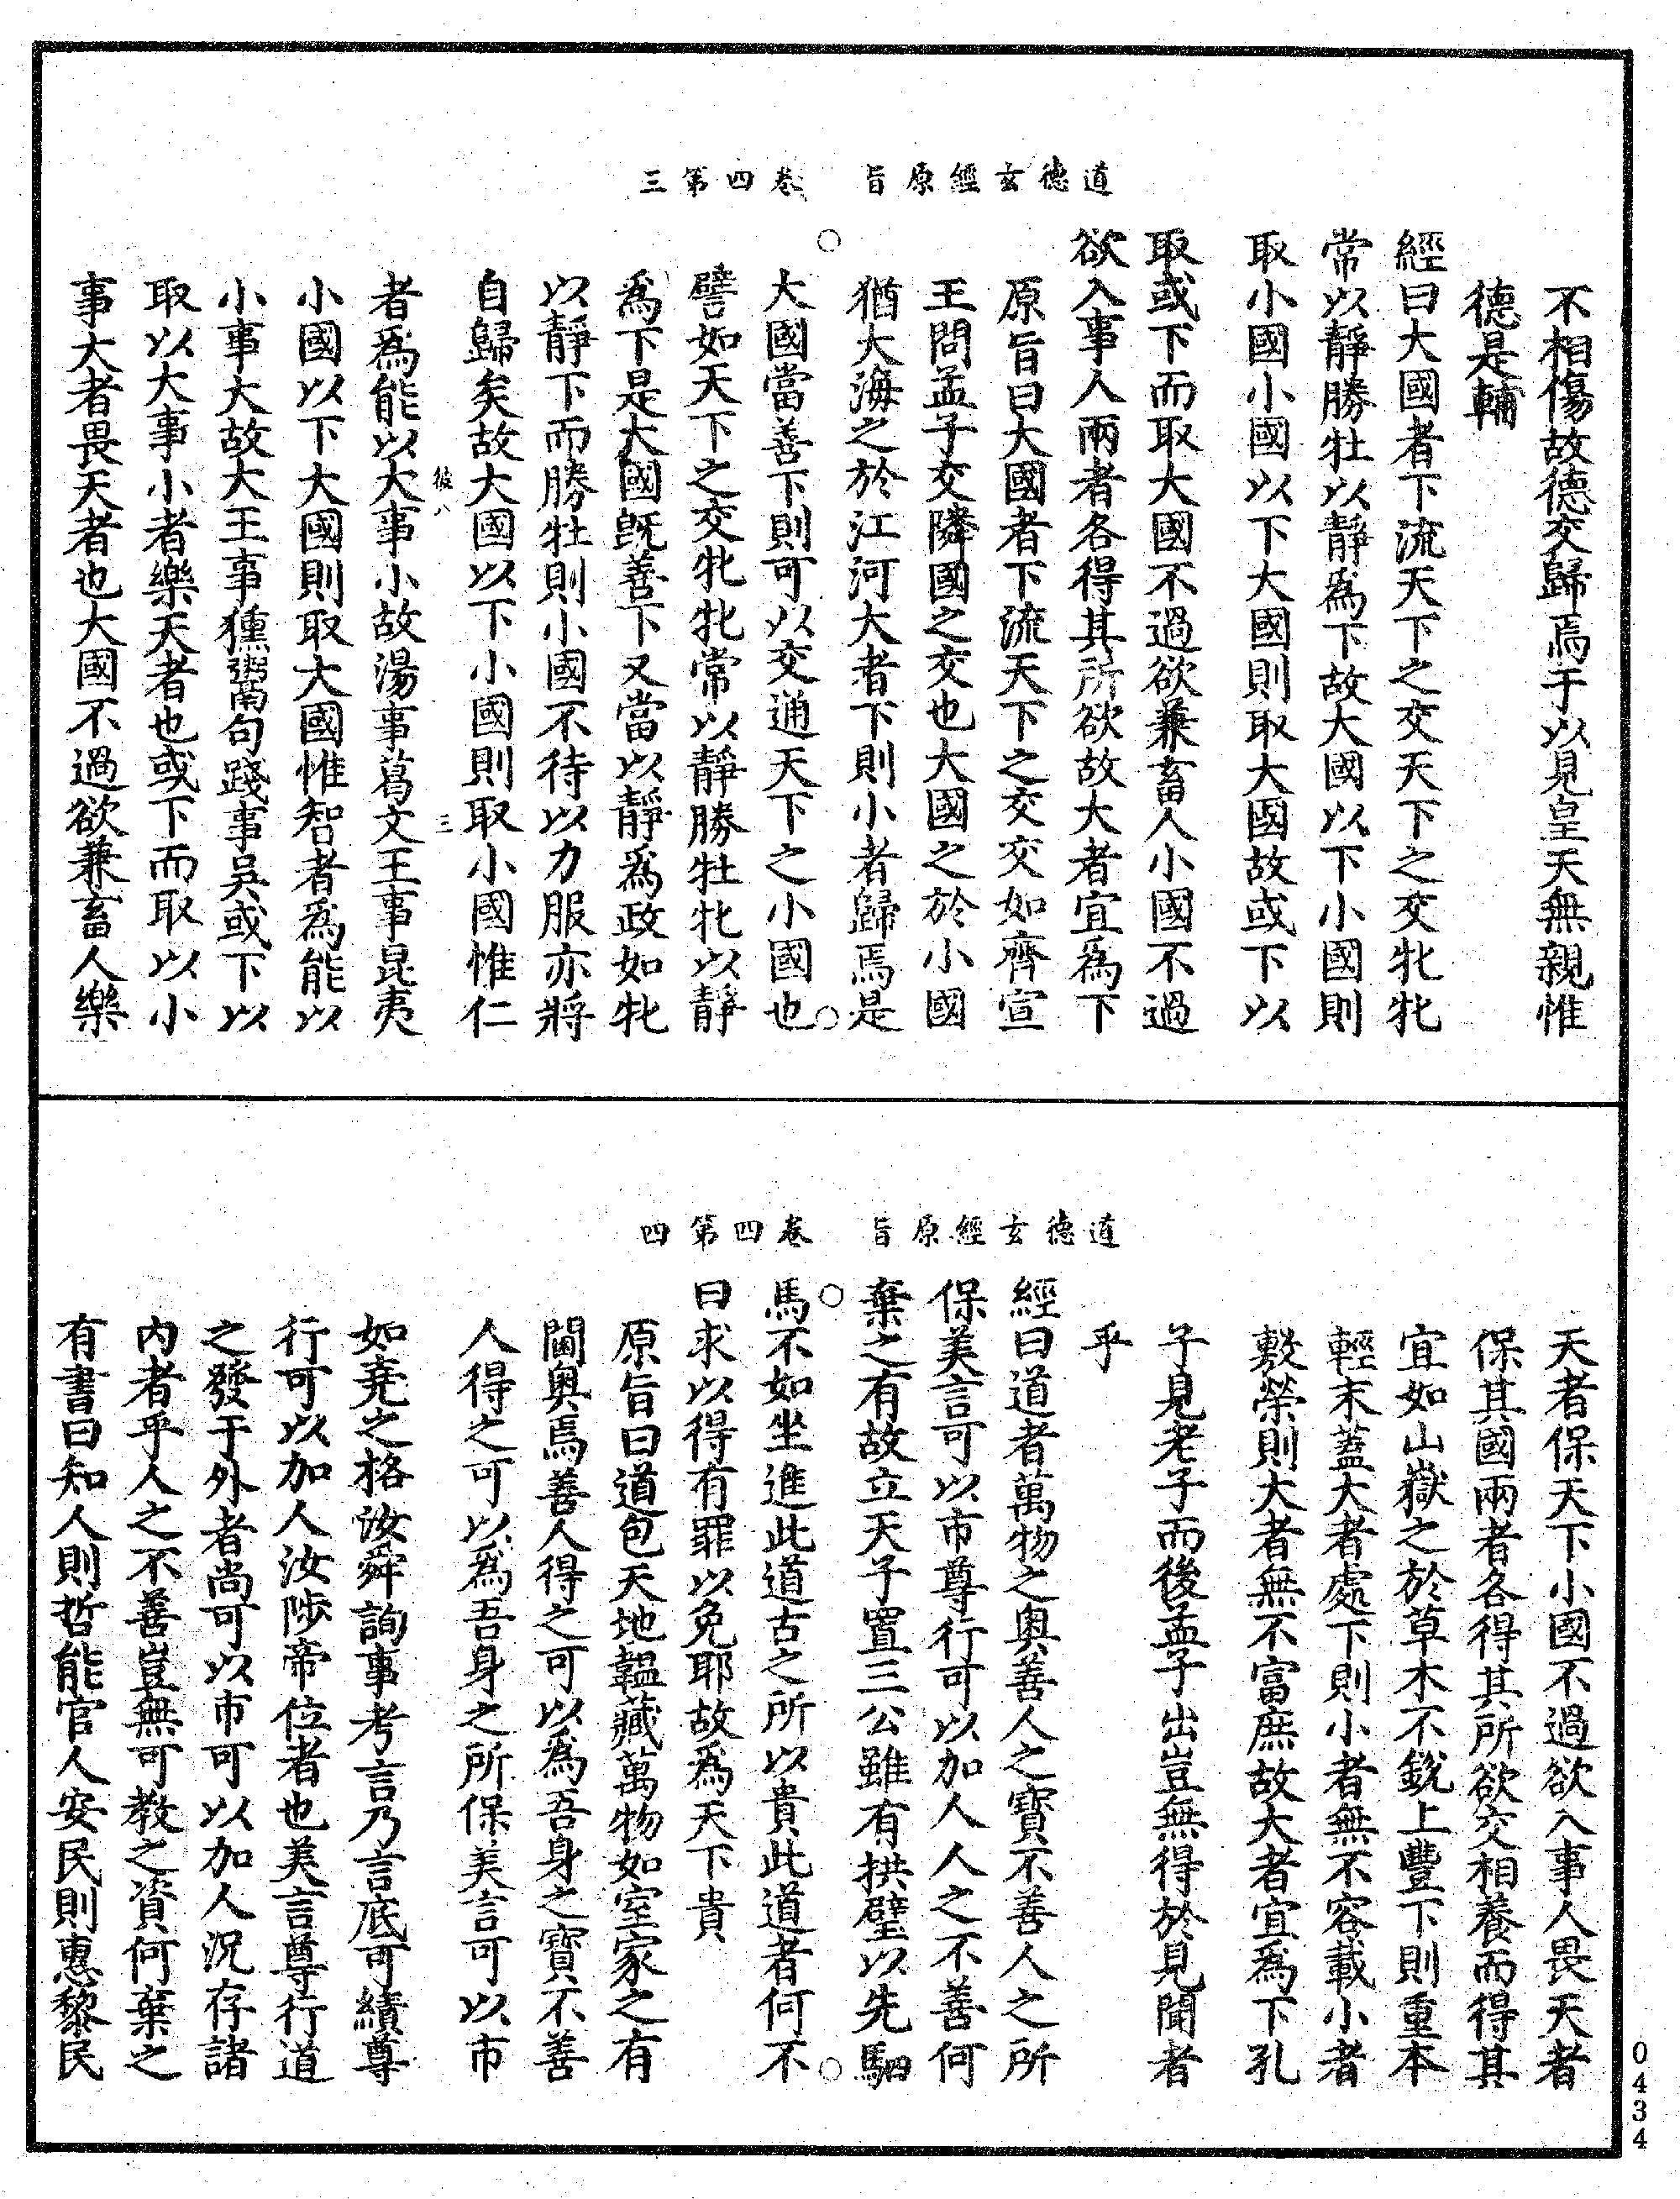 道德玄經原旨　卷四第三
不相傷故德交歸焉于以見皇天無親惟
德是輔
經曰大國者下流天下之交天下之交牝牝
常以靜勝牡以靜爲下故大國以下小國則
取小國小國以下大國則取大國故或下以
取或下而取大國不過欲兼畜人小國不過
欲入事人兩者各得其所欲故大者宜爲下
原旨曰大國者下流天下之交交如齊宣
王問孟子交隣國之交也大國之於小國
猶大海之於江河大者下則小者歸焉是
○
大國當善下則可以交通天下之小國也
○
譬如天下之交牝牝常以靜勝牡牝以靜
爲下是大國旣善下又當以靜爲政如牝
以靜下而勝牡則小國不待以力服亦將
自歸矣故大國以下小國則取小國惟仁
彼八
三
者爲能以大事小故湯事葛文王事昆夷
小國以下大國則取大國惟智者爲能以
小事大故大王事獯鬻句踐事吳或下以
取以大事小者樂天者也或下而取以小
事大者畏天者也大國不過欲兼畜人樂
道德玄經原旨　卷四第四
天者保天下小國不過欲入事人畏天者
保其國兩者各得其所欲交相養而得其
宜如山嶽之於草木不銳上豐下則重本
輕末蓋大者處下則小者無不容載小者
敷榮則大者無不富庶故大者宜爲下孔
子見老子而後孟子出豈無得於見聞者
乎
經曰道者萬物之奧善人之寶不善人之所
保美言可以市尊行可以加人人之不善何
棄之有故立天子置三公雖有拱璧以先駟
○
馬不如坐進此道古之所以貴此道者何不
○
曰求以得有罪以免耶故爲天下貴
原旨曰道包天地韞藏萬物如室家之有
閫奧焉善人得之可以爲吾身之寶不善
人得之可以爲吾身之所保美言可以市
如堯之格汝舜詢事考言乃言底可績尊
行可以加人汝陟帝位者也美言尊行道
之發于外者尚可以市可以加人況存諸
內者乎人之不善豈無可教之資何棄之
有書曰知人則哲能官人安民則惠黎民
0434